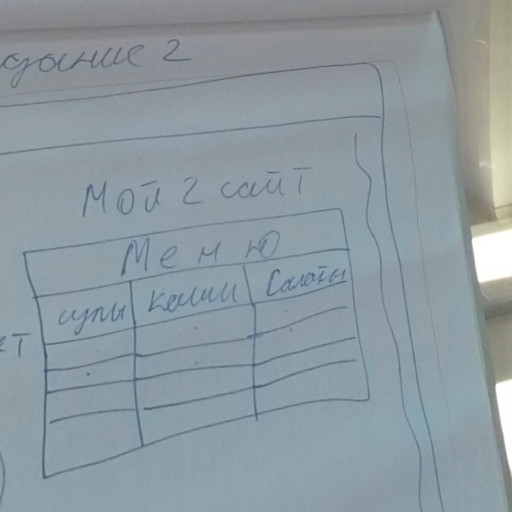 дание 2
Мой 2 сайт
Меню
супы каши Салаты